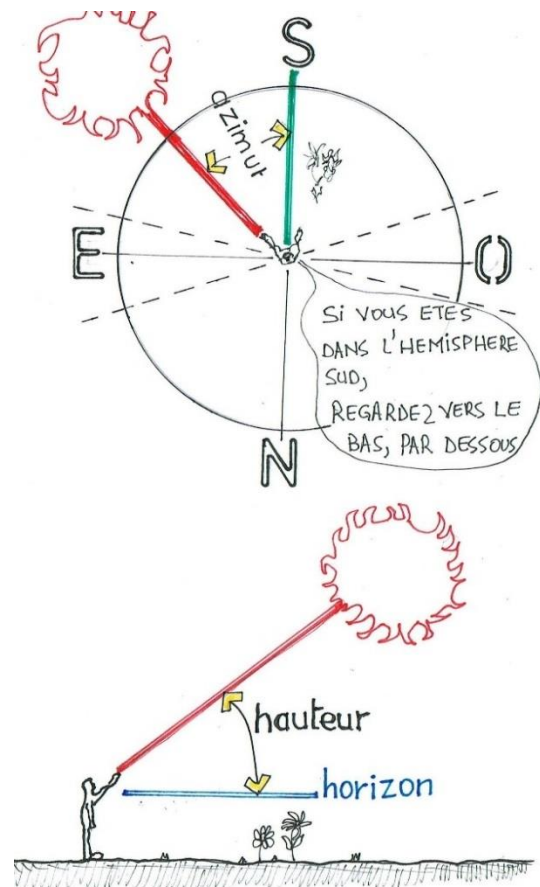 S
azimut
E
O
SI VOUS ETES
DANS L'HEMISPHERE
SUD,
REGARDEZ VERS LE
BAS, PAR DESSOUS
N
hauteur
horizon